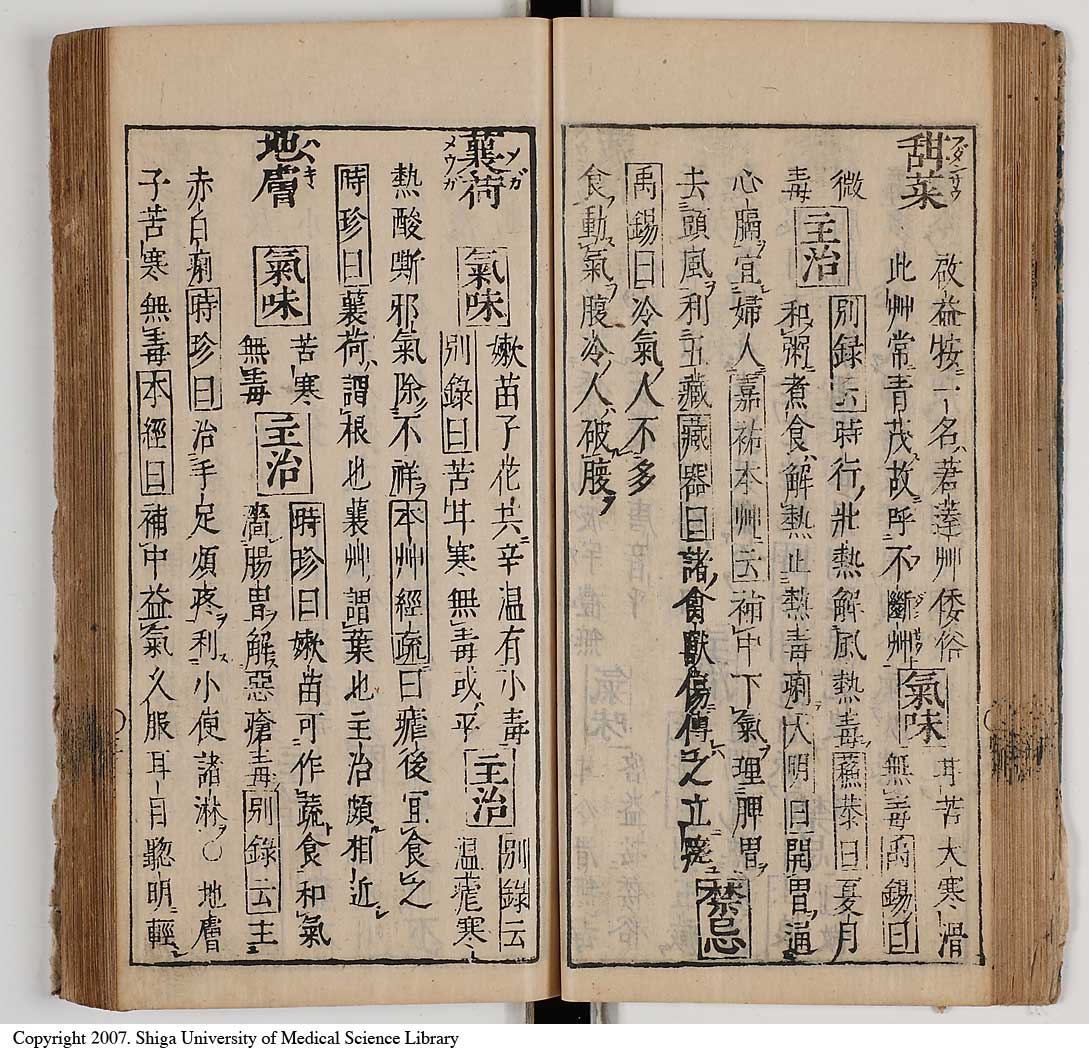 甜菜
フダンサウ
啟益按一名莙薘艸倭俗
此艸常青茂故呼不斷艸
氣味
甘苦大寒滑
無毒禹錫曰
微
毒
主治
別録云時行壯熱解風熱毒蘓恭曰夏月
和粥煮食解熱止熱毒痢大明曰開胃通
心膈宜婦人嘉祐本艸云補中下氣理脾胃
去頭風利五藏藏器曰諸禽獸傷傅之立愈
禁忌
禹錫曰冷氣人不多
食動氣腹冷人破腹
蘘荷
メガ
メウガ
氣味
嫩苗子花共辛温有小毒
別錄曰苦甘寒無毒或平
主治
別錄云
温瘧寒
熱酸嘶邪氣除不祥本艸經疏曰瘧後宜食之
時珍曰蘘荷謂根也蘘艸謂葉也主治頗相近
地膚
氣味
苦寒
無毒
主治
時珍曰嫩苗可作蔬食和氣
濇腸胃解惡瘡毒別錄云主
赤白痢時珍曰治手足煩疼利小便諸淋○地膚
子苦寒無毒本經曰補中益氣久服耳目聰明輕
Copyright 2007. Shiga University of Medical Science Library